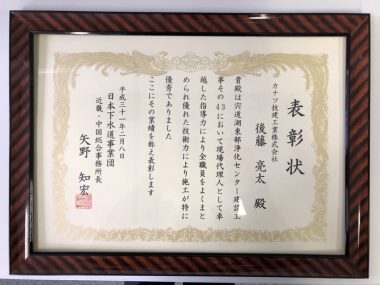 表彰状
カナツ技建工業株式会社
後藤 亮太 殿
貴殿は宍道湖東部浄化センター建設工
事その43において現場代理人として卓
越した指導力により全職員をよくまと
められ優れた技術力により施工が特に
優秀でありました
ここにその業績を称え表彰します
平成三十一年二月八日
日本下水道事業団
近畿・中国総合事務所長
矢野 知宏